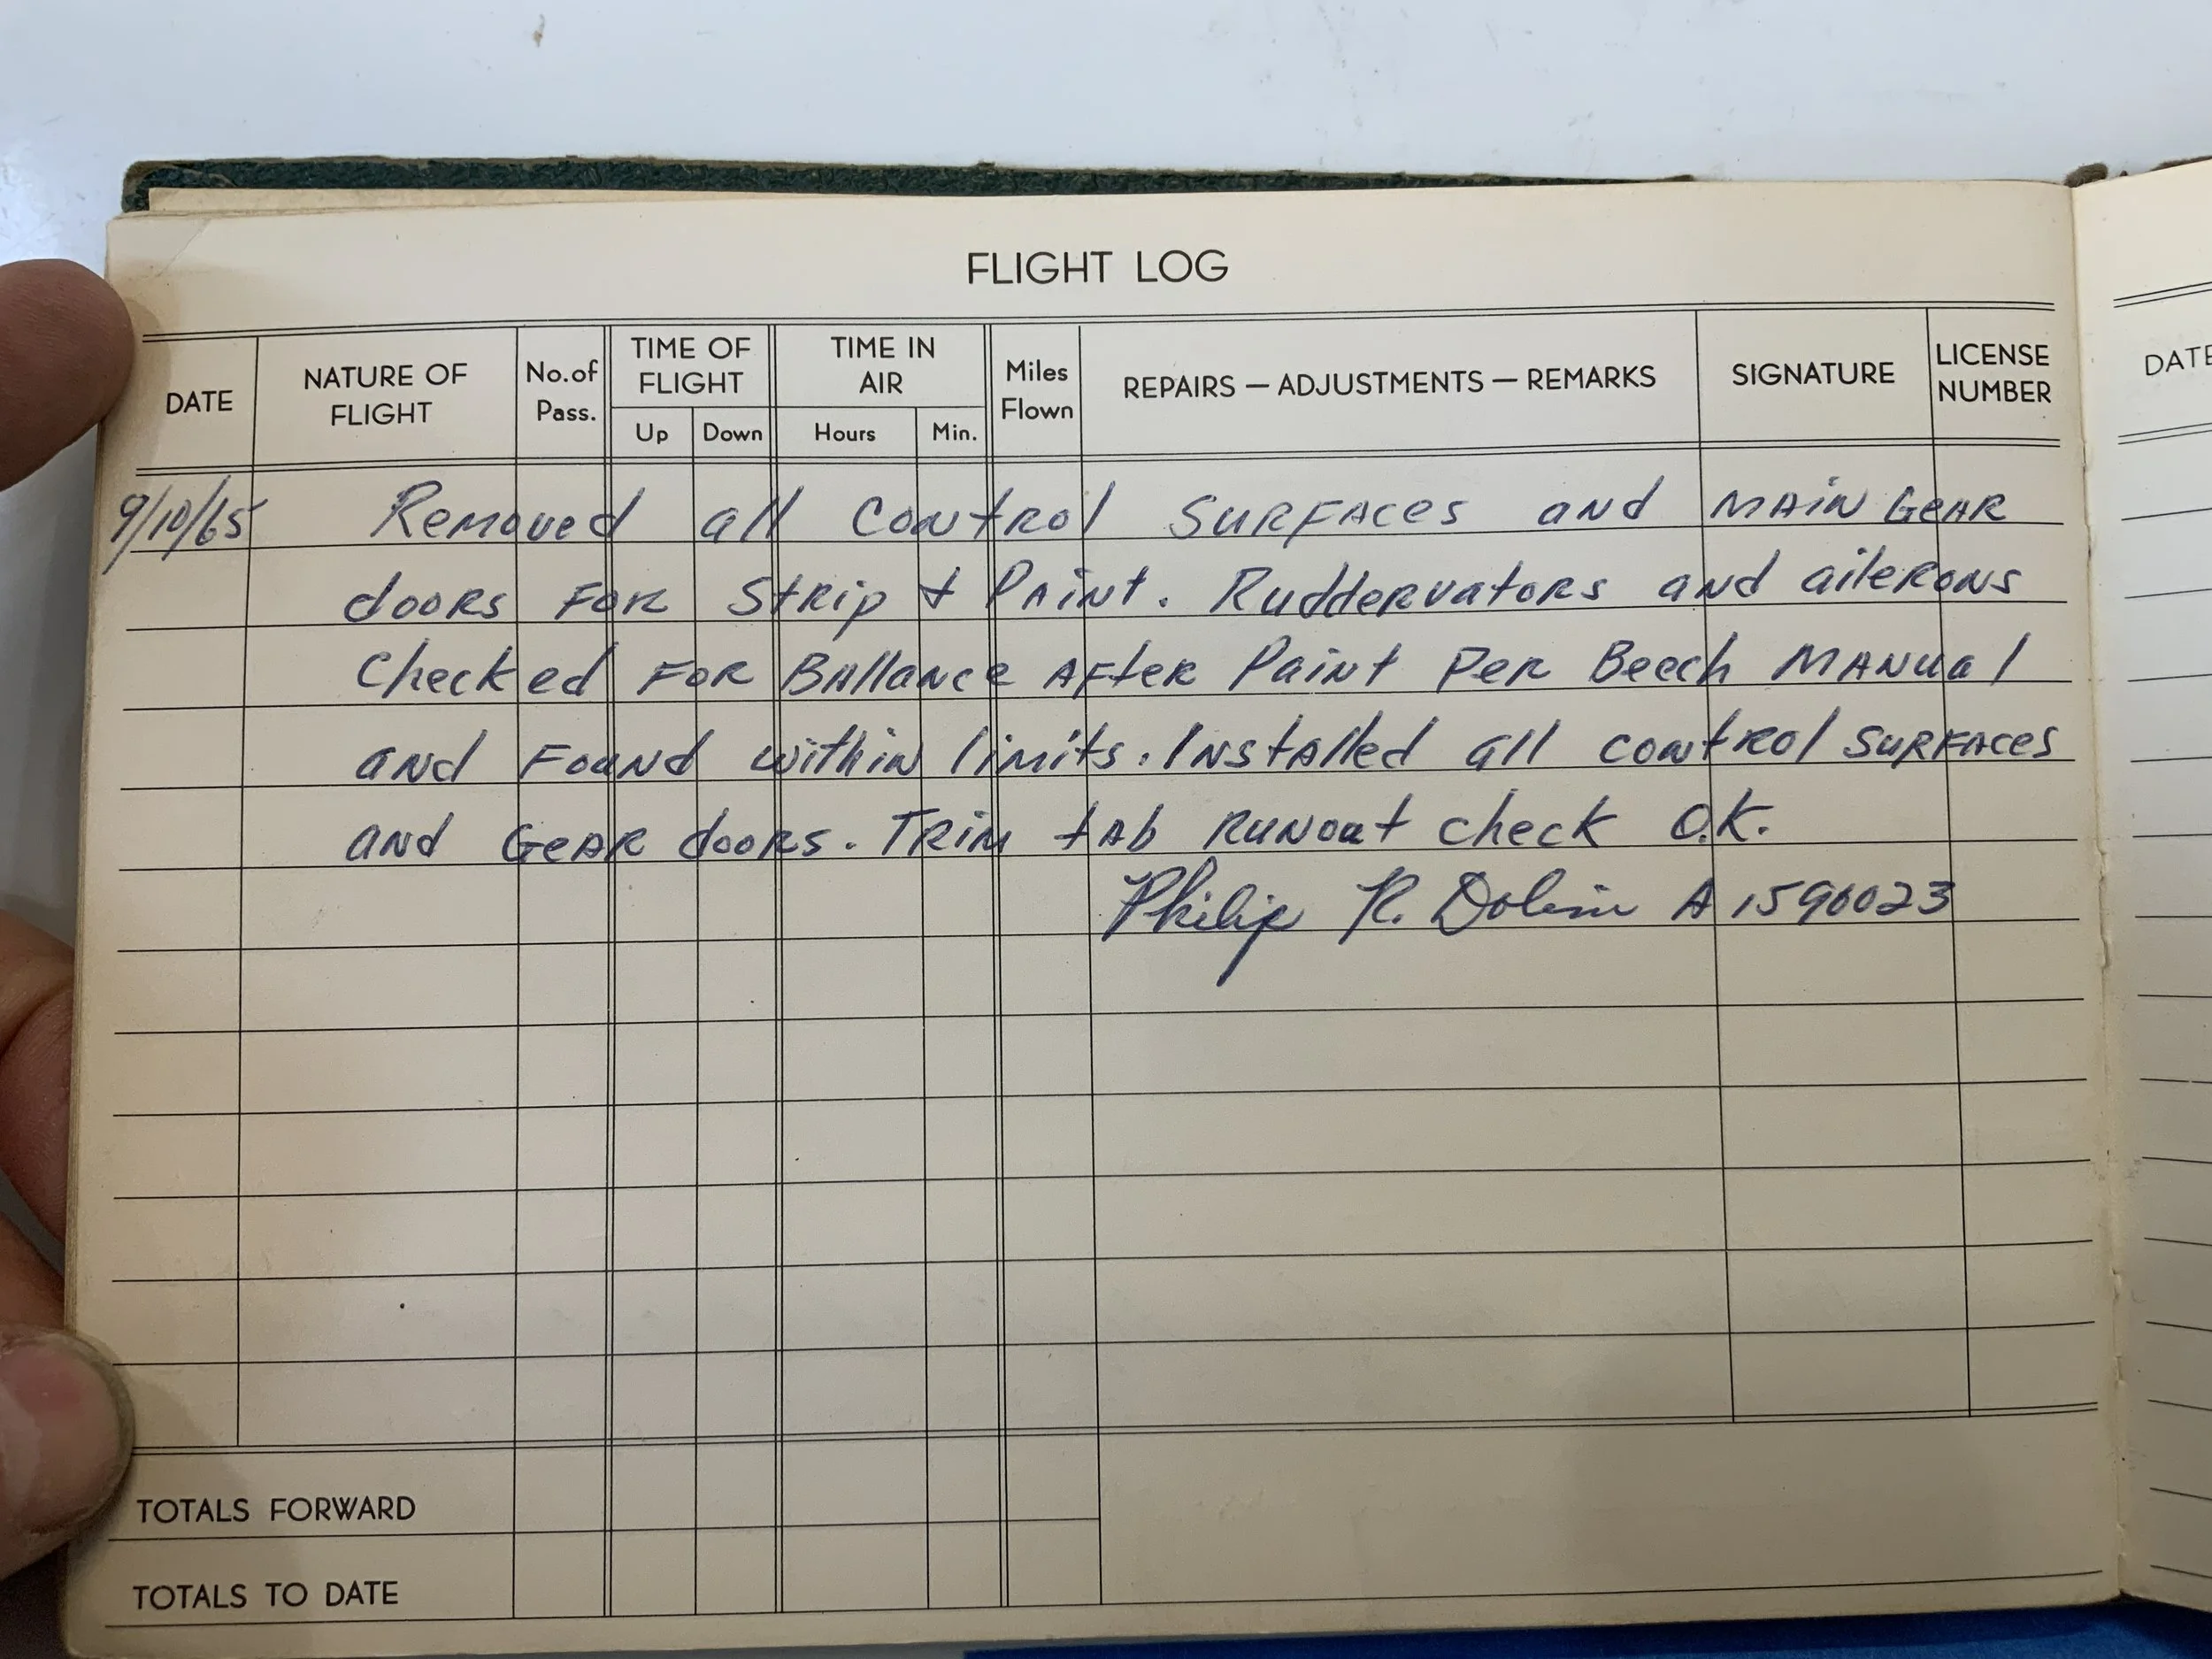 FLIGHT LOG
DATE NATURE OF FLIGHT No. of Pass. TIME OF FLIGHT Up Down TIME IN AIR Hours Min. Miles Flown REPAIRS — ADJUSTMENTS — REMARKS SIGNATURE LICENSE NUMBER
DATE
9/10/65 Removed all control surfaces and main gear
doors for strip & paint. Ruddervators and ailerons
checked for ballance after paint per Beech manual
and found within limits. Installed all control surfaces
and gear doors. Trim tab runout check O.K.
Philip R. A 1590023
TOTALS FORWARD
TOTALS TO DATE